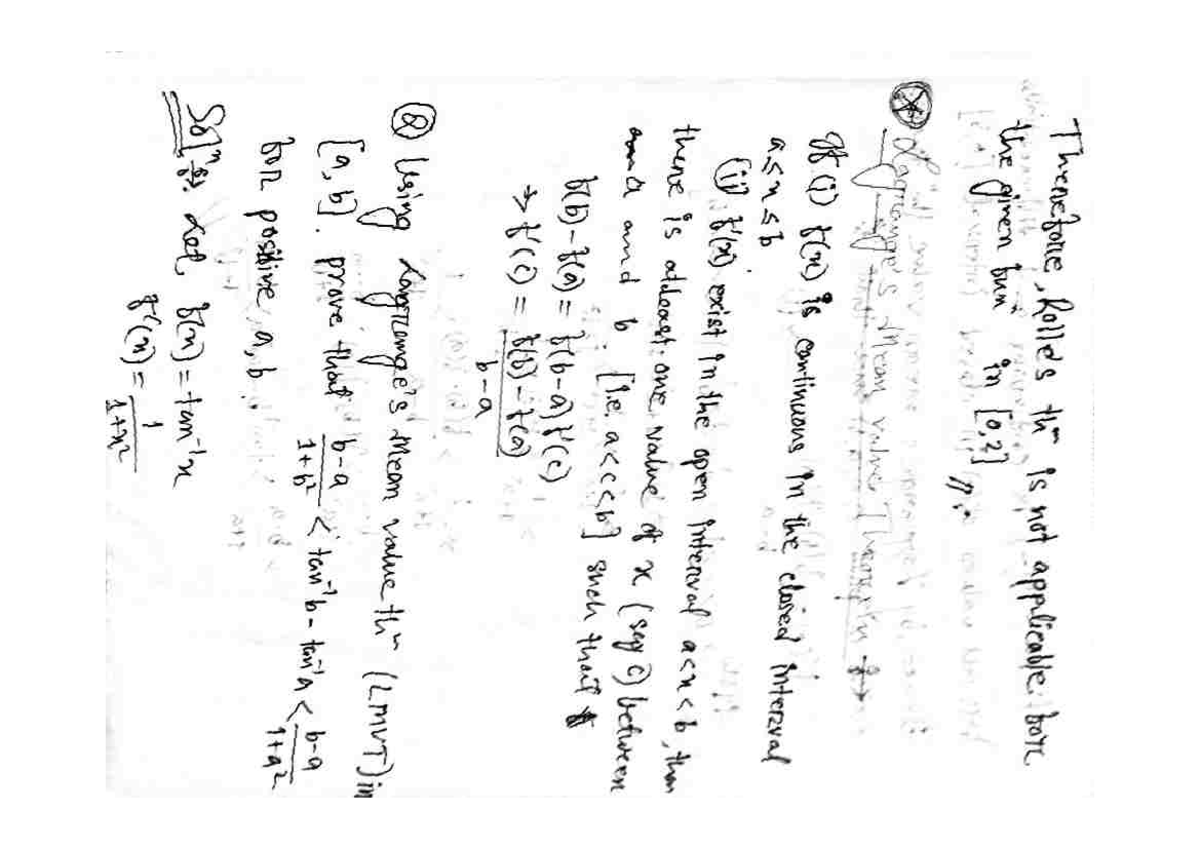 Therefore, Rolle's thᵐ is not applicable. for
the given funⁿ in [0,2]
Lagrange's Mean value Theorem :→
If (i) f(x) is continuous in the closed interval
a ≤ x ≤ b
(ii) f'(x) exist in the open interval a < x < b, then
there is atleast one value of x (say c) between
a and b [i.e. a < c < b] such that
f(b) - f(a) = f(b-a) f'(c)
→ f'(c) = \frac{f(b) - f(a)}{b - a}
Ⓠ Using Langrange's Mean value thᵐ (LMVT) in
[a, b]. prove that \frac{b-a}{1+b²} < tan⁻¹b - tan⁻¹a < \frac{b-a}{1+a²}
for positive a, b.
Solⁿ :→ Let, f(x) = tan⁻¹x
f'(x) = \frac{1}{1+x²}